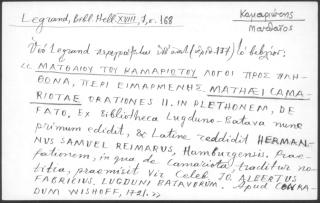 Legrand, Bibl. Hell. XVIII, 1, σ. 168
Καμαριώτης
Ματθαῖος
Ὑπὸ Legrand περιγράφεται (ἀριθ. 137) ὁ βιβλίον:
« ΜΑΤΘΑΙΟΥ ΤΟΥ ΚΑΜΑΡΙΩΤΟΥ ΛΟΓΟΙ ΠΡΟΣ ΠΛΗ-
ΘΩΝΑ, ΠΕΡΙ ΕΙΜΑΡΜΕΝΗΣ MATHÆI CAMA-
RIOTAE ORATIONES II. IN PLETHONEM, DE
FATO, Ex Bibliotheca Lugduno-Batava nunc
primum edidit, & Latine reddidit HERMAN-
NUS SAMUEL REIMARUS, Hamburgensis, Prae-
fationem, in qua de Camariota traditur no-
titia, praemisit Vir Celeb. JO. ALBERTUS
FABRICIUS, LUGDUNI BATAVORUM. Apud CONRA-
DUM WISHOFF, 1721. »